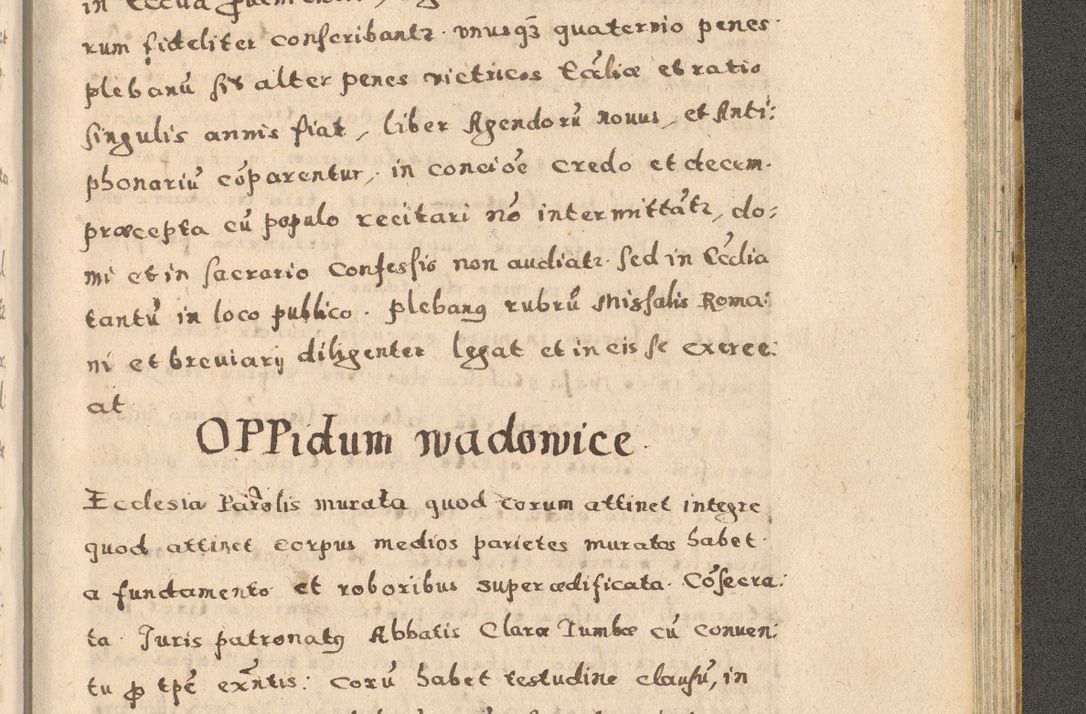 rum fideliter conscribantr. vnusq3 quaternio penes
plebanū sit alter penes victricos Ecćliæ et ratio
singulis annis fiat, liber Agendorū nouus, et Anti:
phonariū cōparentur, in concioē credo et decem
præcepta cū populo recitari nō intermittātr, do:
mi et in sacrario Confessio non audiatr. sed in Ecćlia
tantū in loco publico. plebanus rubrū Missalis Roma:
ni et breuiarij diligenter legat et in eis se exerce:
at
OPPidum wadowice
Ecclesia Parolis murata quod corum attinet integre
quod attinet corpus medios parietes muratos habet
a fundamento et roboribus superædificata. Cōsecra:
ta. Juris patronatus Abbatis Claræ Tumbæ cū conuen:
tu ꝓ tpē exn̄tis: Corū habet testudine clausū, in